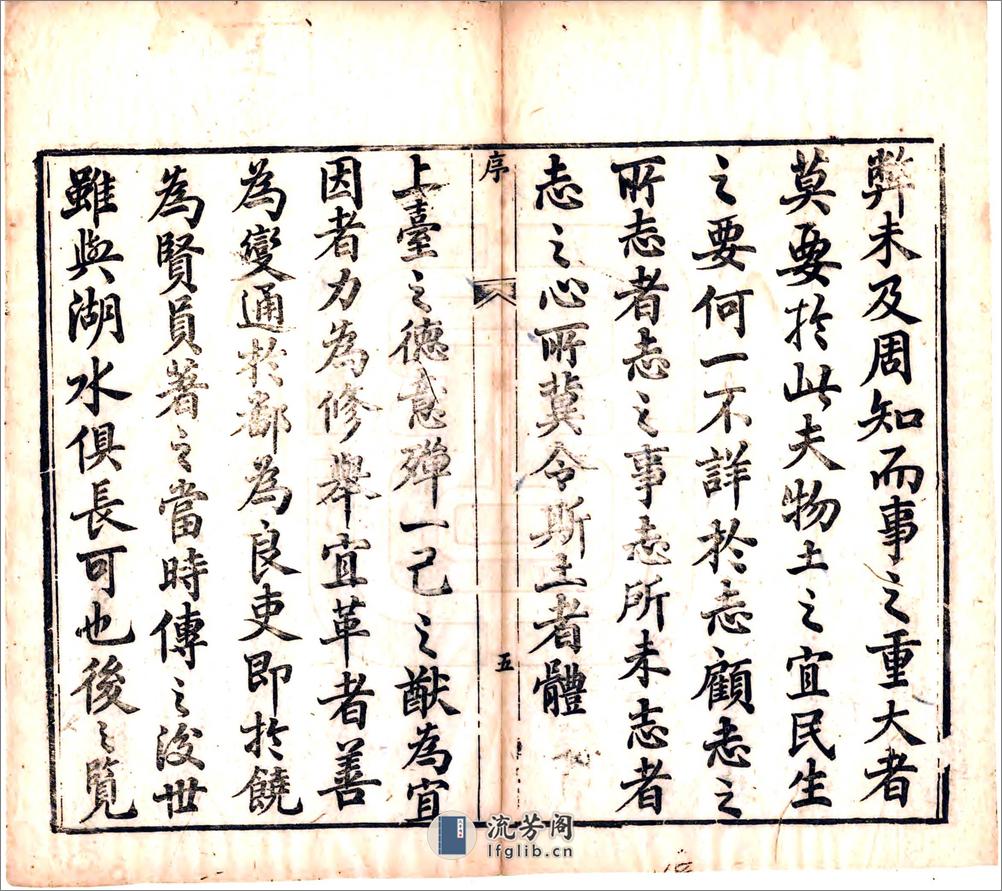 弊未及周知而事之重大者
莫要於此夫物土之宜民生
之要何一不詳於志顧志之
所志者志之事志所未志者
志之心所冀令斯土者體
序
五
上臺之德意殫一己之猷為宜
因者力為修舉宜革者善
為變通於鄱為良吏即於饒
為賢員著之當時傳之後世
雖與湖水俱長可也後之覽
流芳阁
lfglib.cn